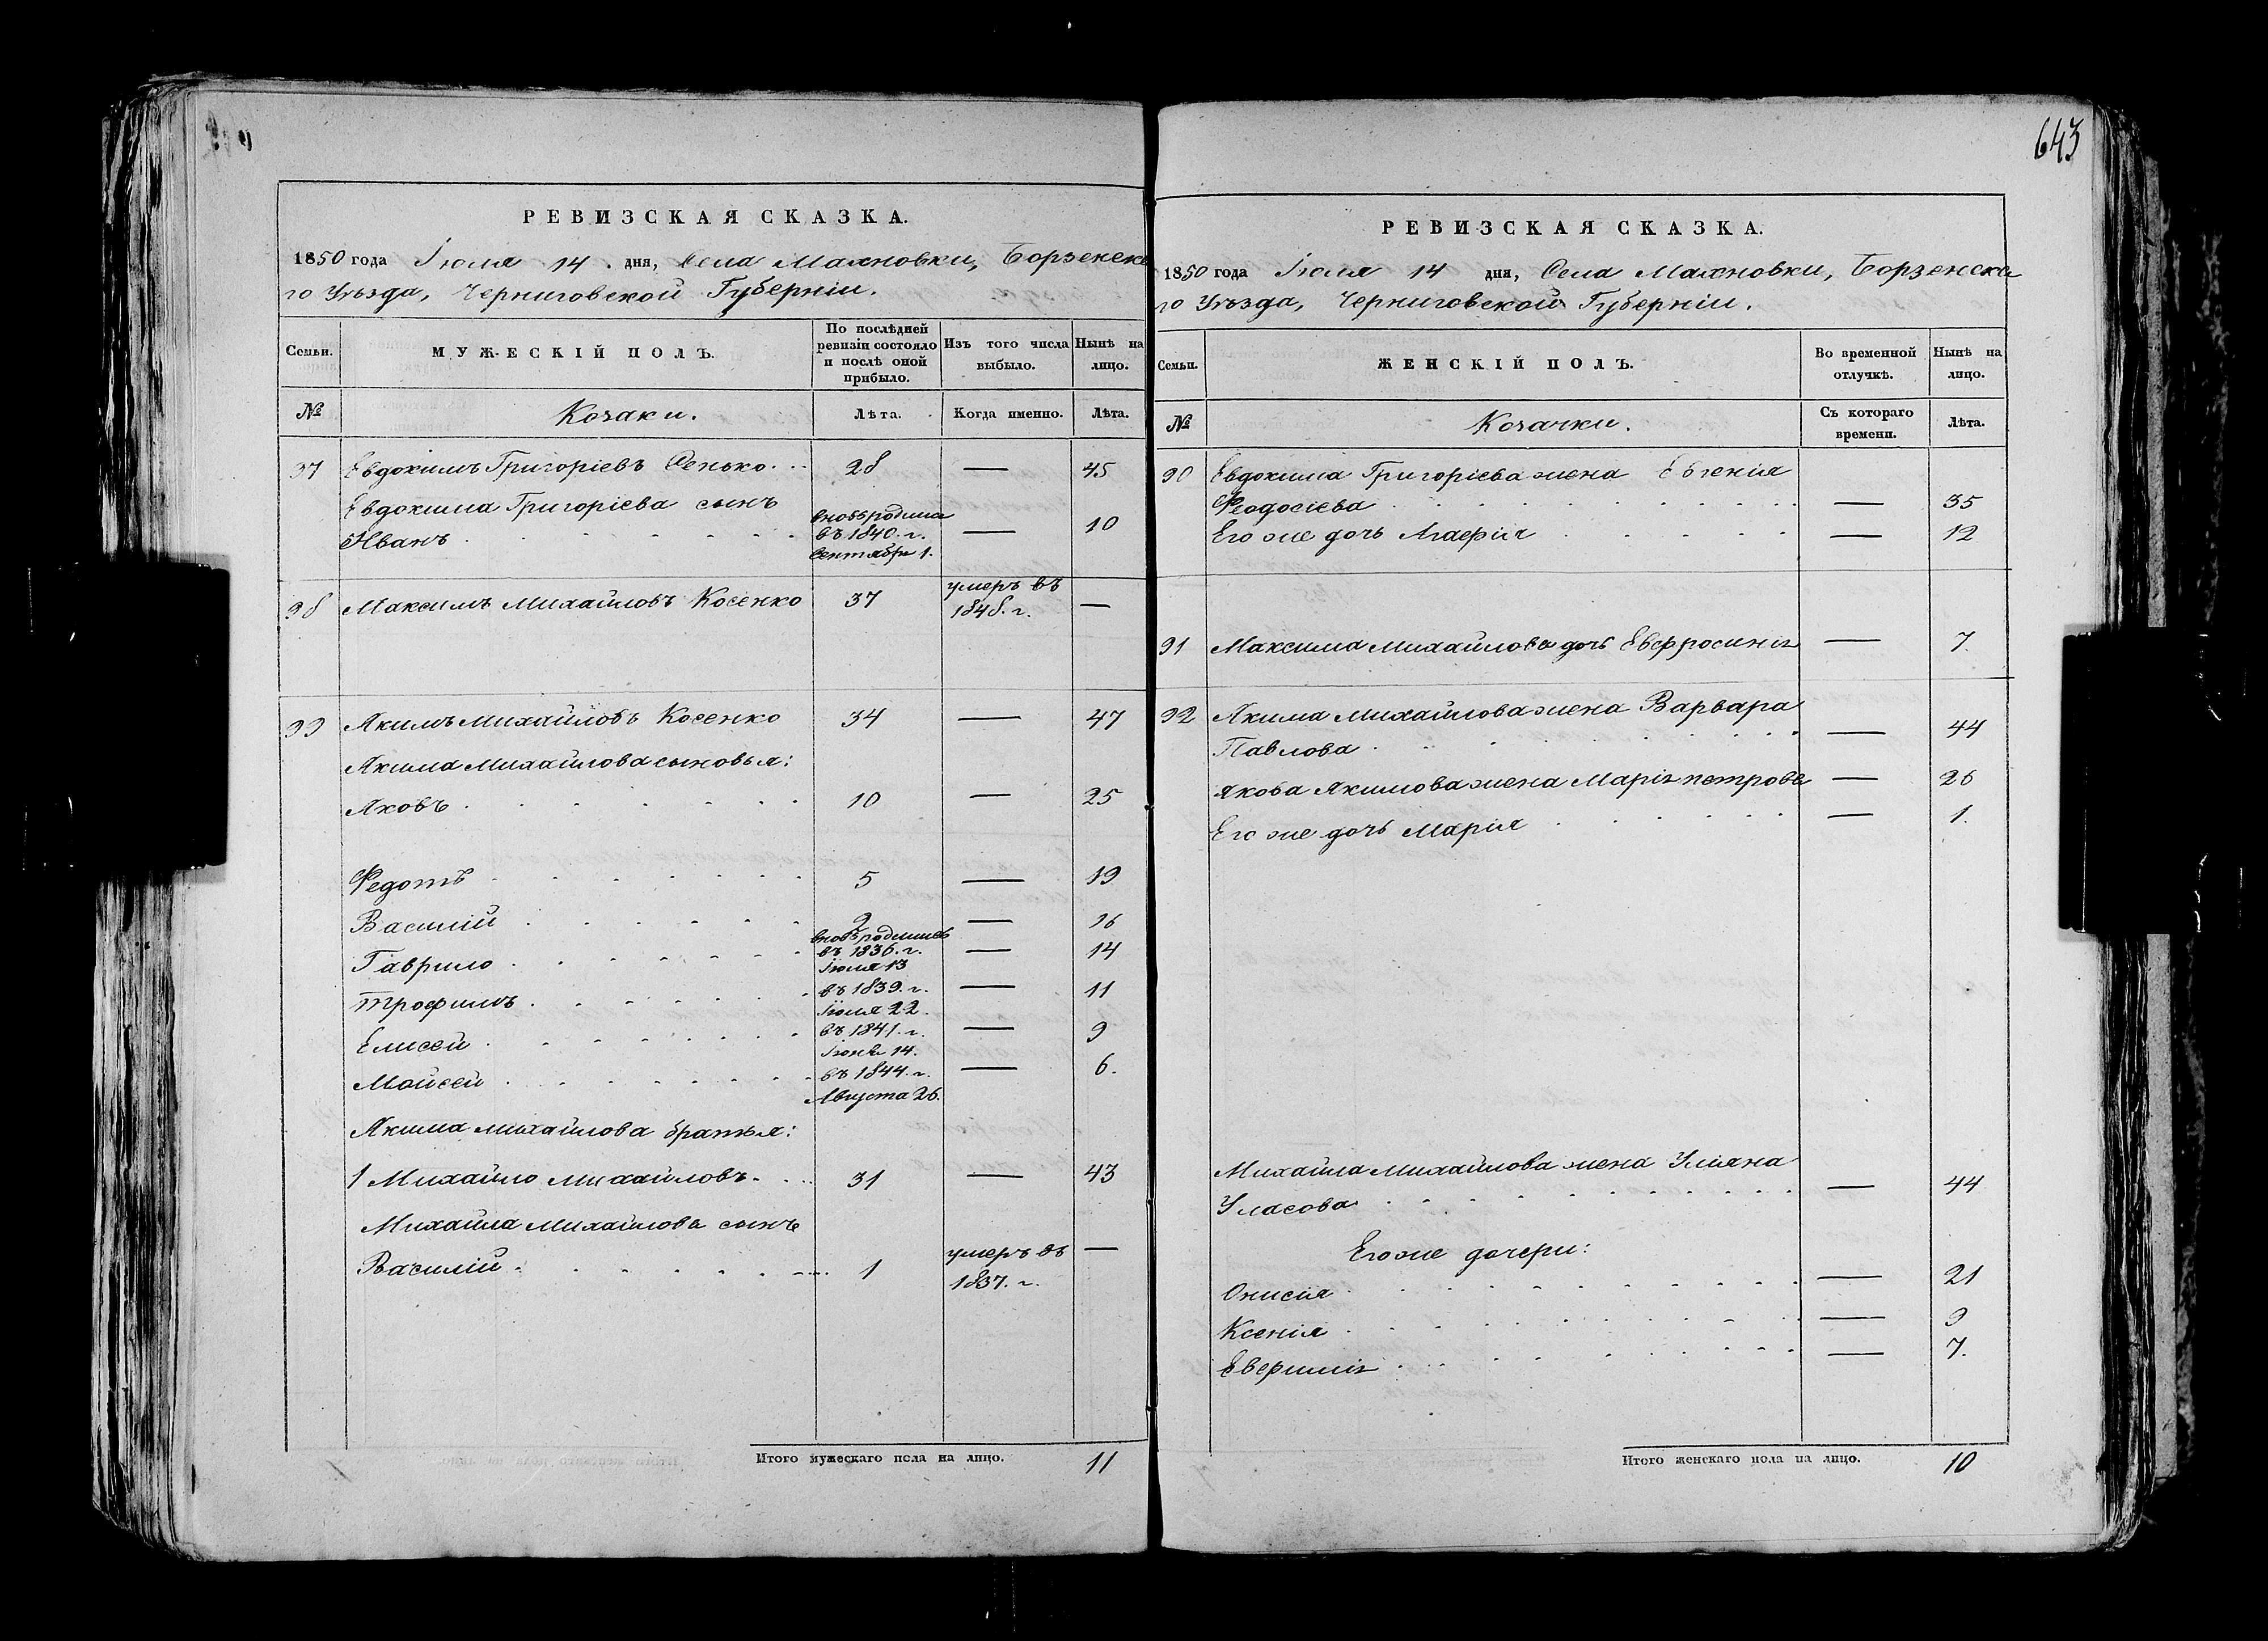 643
РЕВИЗСКАЯ СКАЗКА.
1850 года Іюля 14 дня, Села Махновки, Борзенска
го Уѣзда, Черниговской Губерніи.
Семьи.
МУЖЕСКІЙ ПОЛЪ.
По послѣдней
ревизіи состояло
и послѣ оной
прибыло.
Изъ того числа
выбыло.
Нынѣ на
лицо.
№
Козаки.
Лѣта.
Когда именно.
Лѣта.
Евдокимъ Григоріевъ Сенько 28 — 45
Евдокима Григоріева сынъ
Иванъ вновь родился въ 1840. г. Сентября 1. — 10
98 Максимъ Михайловъ Косенко 37 умеръ въ 1848. г. —
99 Якимъ Михайловъ Косенко 34 — 47
Якима Михайлова сыновья:
Яковъ 10 — 25
Федотъ 5 — 19
Василій 2 — 16
Гаврило вновь родился въ 1836. г. Іюля 13 — 14
Трофимъ въ 1839. г. Іюля 22. — 11
Елисей въ 1841. г. Іюня 14. — 9
Мойсей въ 1844. г. Августа 26. — 6.
Якима Михайлова братья:
1 Михайло Михайловъ 31 — 43
Михайла Михайлова сынъ
Василій 1 умеръ въ 1837. г. —
Итого мужескаго пола на лицо. 11
РЕВИЗСКАЯ СКАЗКА.
1850 года Іюля 14 дня, Села Махновки, Борзенска
го Уѣзда, Черниговской Губерніи.
Семьи.
ЖЕНСКІЙ ПОЛЪ.
Во временной
отлучкѣ.
Нынѣ на
лицо.
№
Козачки.
Съ котораго
времени.
Лѣта.
90 Евдокима Григоріева жена Евгенія
Феодосіева — 35
Его же дочь Агафія — 12
91 Максима Михайлова дочь Евфросинія — 7.
92 Якима Михайлова жена Варвара
Павлова — 44
Якова Якимова жена Марія Петрова — 26
Его же дочь Марія — 1.
Михайла Михайлова жена Уліяна
Уласова — 44
Его же дочери:
Онисія — 21
Ксенія — 9
Евфимія — 7.
Итого женскаго пола на лицо. 10